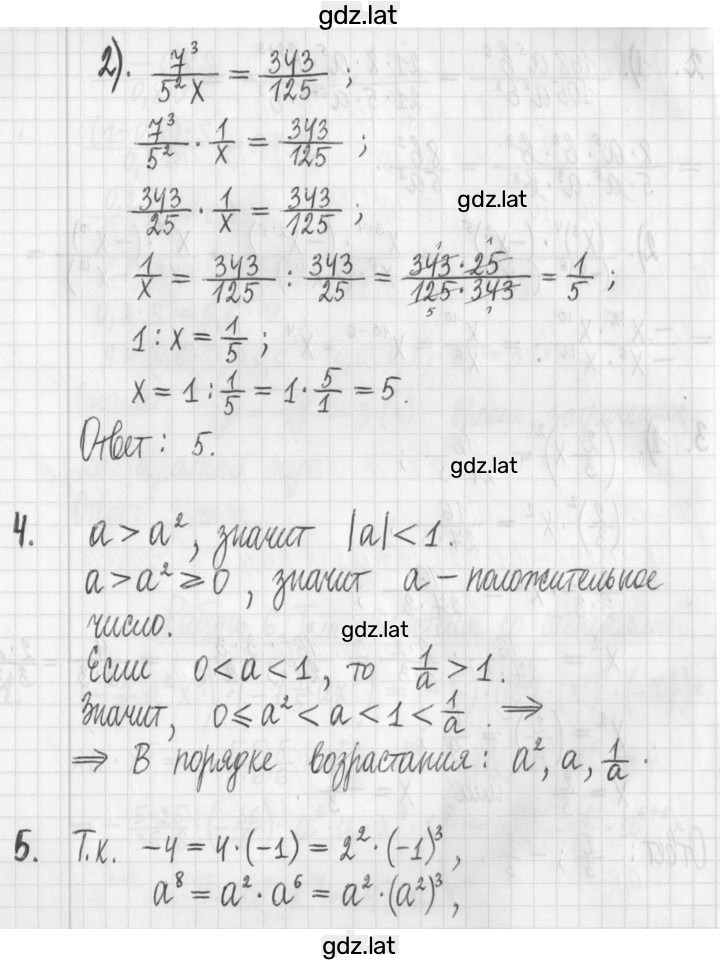 gdz.lat
2). 7³/5²x = 343/125 ;
7³/5² · 1/x = 343/125 ;
343/25 · 1/x = 343/125 ;
gdz.lat
1/x = 343/125 : 343/25 = 343·25/125·343 = 1/5 ;
1 : x = 1/5 ;
x = 1 : 1/5 = 1 · 5/1 = 5.
Ответ: 5.
gdz.lat
4. a > a², значит |a| < 1.
a > a² ⩾ 0, значит a – положительное
число.
gdz.lat
Если 0 < a < 1, то 1/a > 1.
Значит, 0 ⩽ a² < a < 1 < 1/a. ⇒
⇒ В порядке возрастания: a², a, 1/a.
5. Т.к. −4 = 4·(−1) = 2²·(−1)³,
a⁸ = a²·a⁶ = a²·(a²)³,
gdz.lat